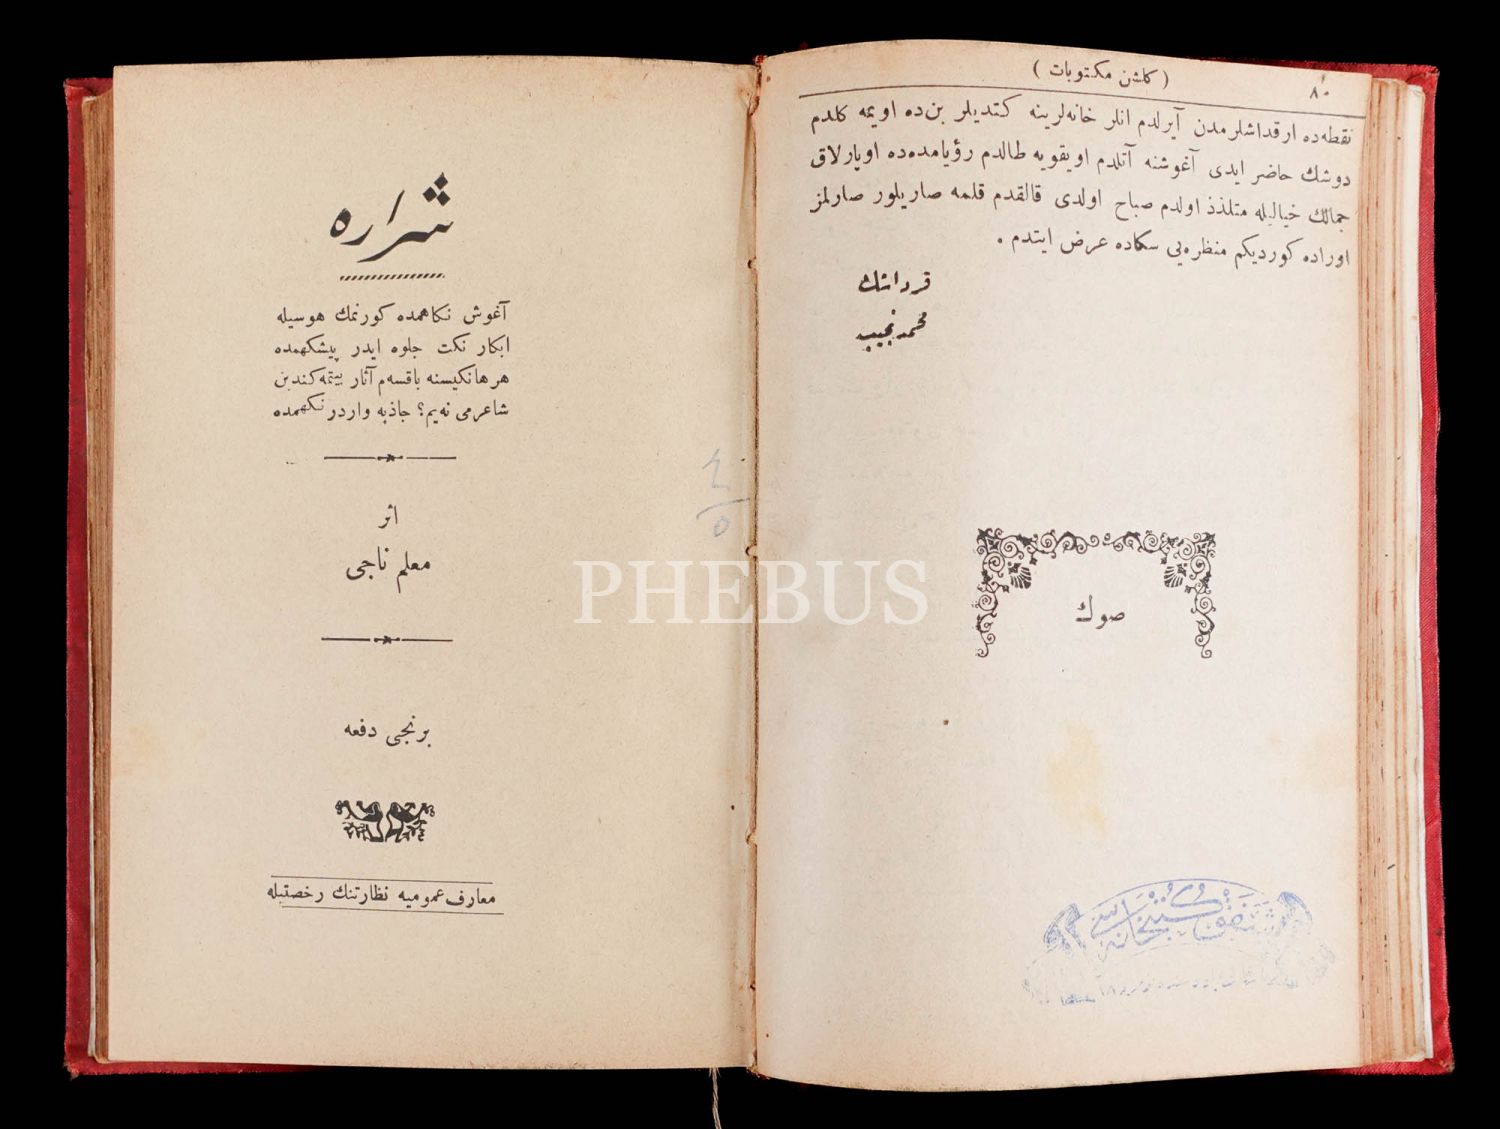 ٨٠
( كلشن مكتوبات )
نقطه‌ده ارقداشلرمدن آيرلدم انلر خانه‌لرينه كتديلر بن‌ده اويمه كلدم
دوشك حاضر ايدى آغوشنه آتلدم اويقويه طالدم رؤيامده‌ده اوپارلاق
جمالك خياليله متلذذ اولدم صباح اولدى قالقدم قلمه صاريلور صارلمز
اوراده كورديكم منظره‌يى سكاده عرض ايتدم .
قرداشك
محمد نجيب
صوك
شفق كتبخانه‌سى
شراره
آغوش نكاهمده كورنمك هوسيله
ابكار نكت جلوه ايدر پيشكهمده
هر هانكيسنه باقسه‌م آثار بيتمه كندين
شاعرمى نه‌يم؟ جاذبه واردر نكهمده
اثر
معلم ناجى
برنجى دفعه
معارف عموميه نظارتنك رخصتيله
٤
٥
PHEBUS